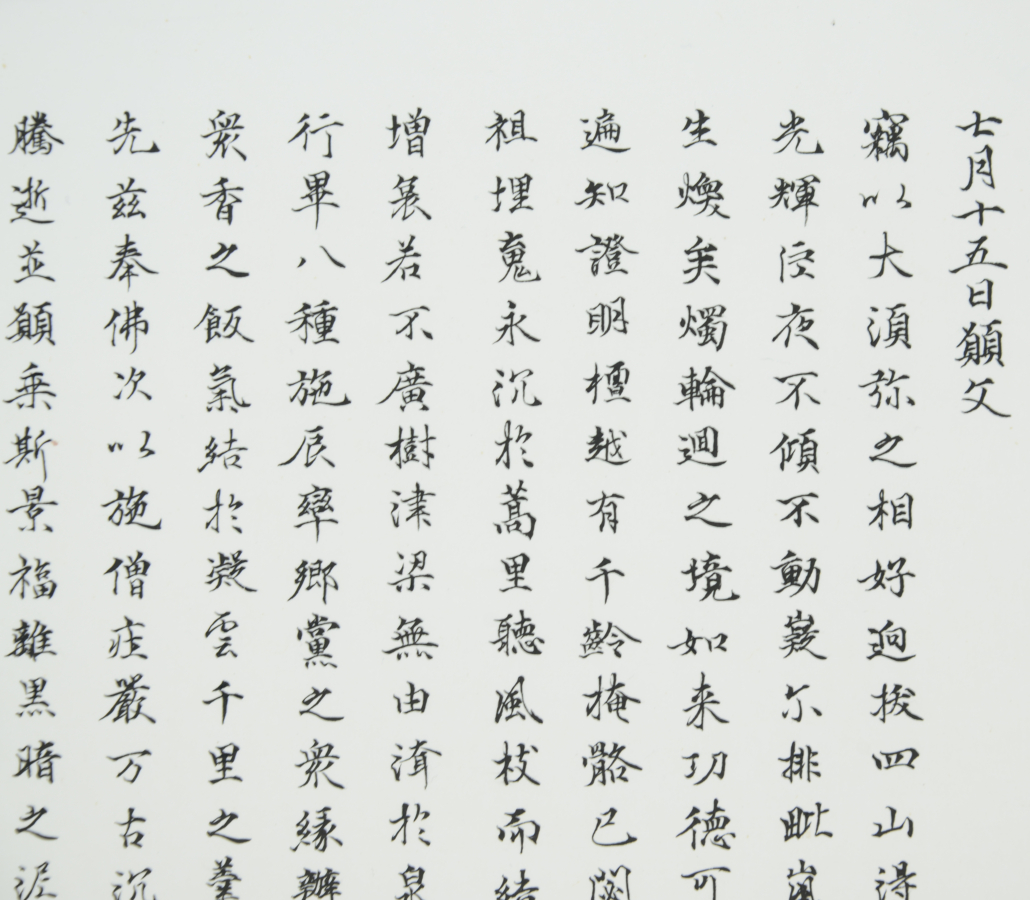 七月十五日願文
竊以大須弥之相好逈拔四山得
光輝侄夜不傾不動嶷尔排毗嵐
生煥矣燭輪迴之境如来功德可
遍知證明檀越有千齡掩骼已閟
祖埋魂永沉於蒿里聽風枝而結
增哀若不廣樹津梁無由濟於泉
行畢八種施辰率鄉黨之衆緣辦
衆香之飯氣結於凝雲千里之羹
先兹奉佛次以施僧莊嚴万古沉
騰逝並願乘斯景福離黑暗之涯